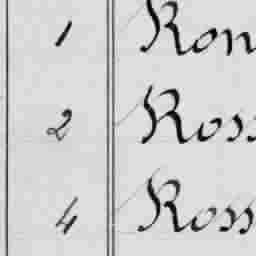 1 Ron
2 Ross
4 Ross